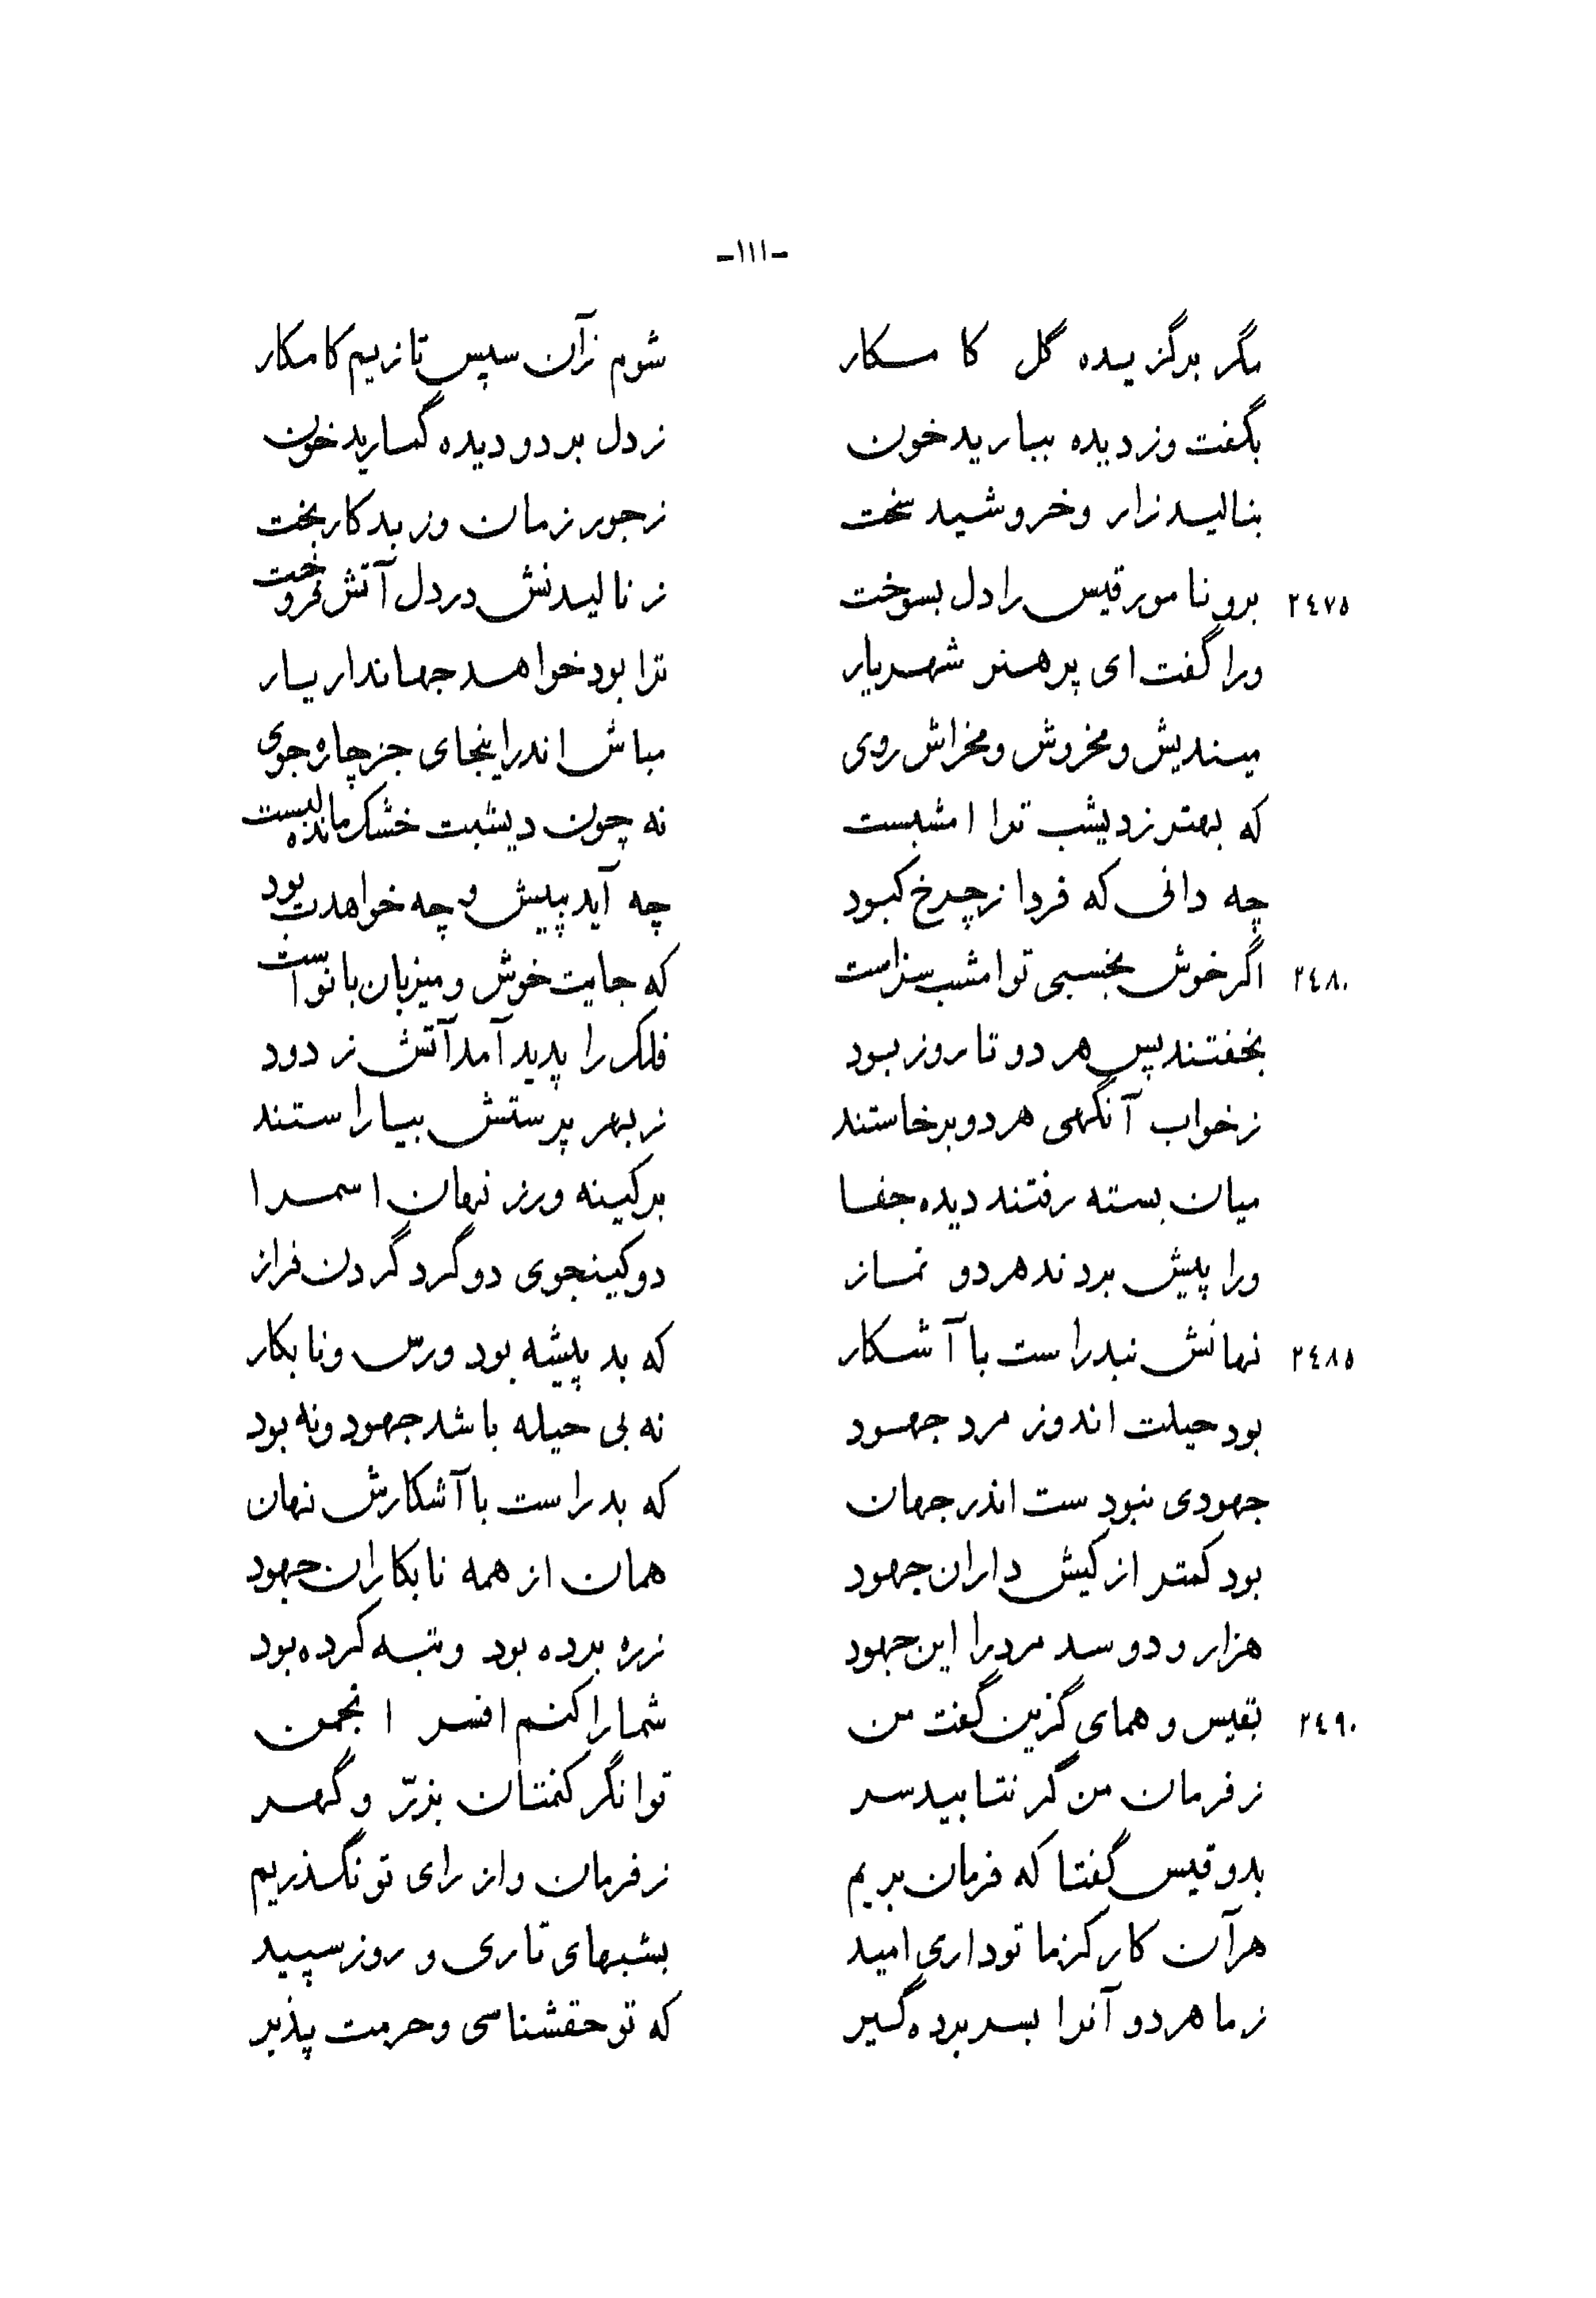 -١١١-
مگر برگزیده گل کامکار شوم زآن سپس تا زیم کامکار
بگفت وز دیده ببارید خون ز دل بر دو دیده گسارید خون
بنالید زار و خروشید سخت ز جور زمان وز بد کار بخت
٢٤٧٥ برو نامور قیس را دل بسوخت ز نالیدنش در دل آتش فروخت
ورا گفت ای پر هنر شهریار ترا بود خواهد جهاندار یار
میندیش و مخروش و مخراش روی مباش اندر اینجای جز چاره جوی
که بهتر ز دیشب ترا امشبست نه چون دیشبت خشک مانده لبست
چه دانی که فردا ز چرخ کبود چه آید پیش و چه خواهدت بود
٢٤٨٠ اگر خوش بخسبی تو امشب سزاست که جایت خوش و میزبان با نواست
بخفتند پس هر دو تا روز بود فلک را پدید آمد آتش ز دود
ز خواب آنگهی هر دو برخاستند ز بهر پرستش بیاراستند
میان بسته رفتند دیده جفا بر کینه ورز نهان اسمرا
ورا پیش بردند هر دو نماز دو کینجوی دو گرد گردن فراز
٢٤٨٥ نهانش نبد راست با آشکار که بد پیشه بود ورس و نابکار
بود حیلت اندوز مرد جهود نه بی حیله باشد جهود و نه بود
جهودی نبودست اندر جهان که بد راست با آشکارش نهان
بود کمتر از کیش داران جهود همان از همه نابکاران جهود
هزار و دو سد مرد را این جهود ز ره برده بود و تبه کرده بود
٢٤٩٠ بقیس و همای گزین گفت من شما را کنم افسر انجمن
ز فرمان من گر نتابید سر توانگر کنمتان بذرّ و گهر
بدو قیس گفتا که فرمان بریم ز فرمان و از رای تو نگذریم
هر آن کار کز ما تو داری امید بشبهای تاری و روز سپید
ز ما هر دو آنرا بسر برده گیر که تو حقشناسی و حرمت پذیر